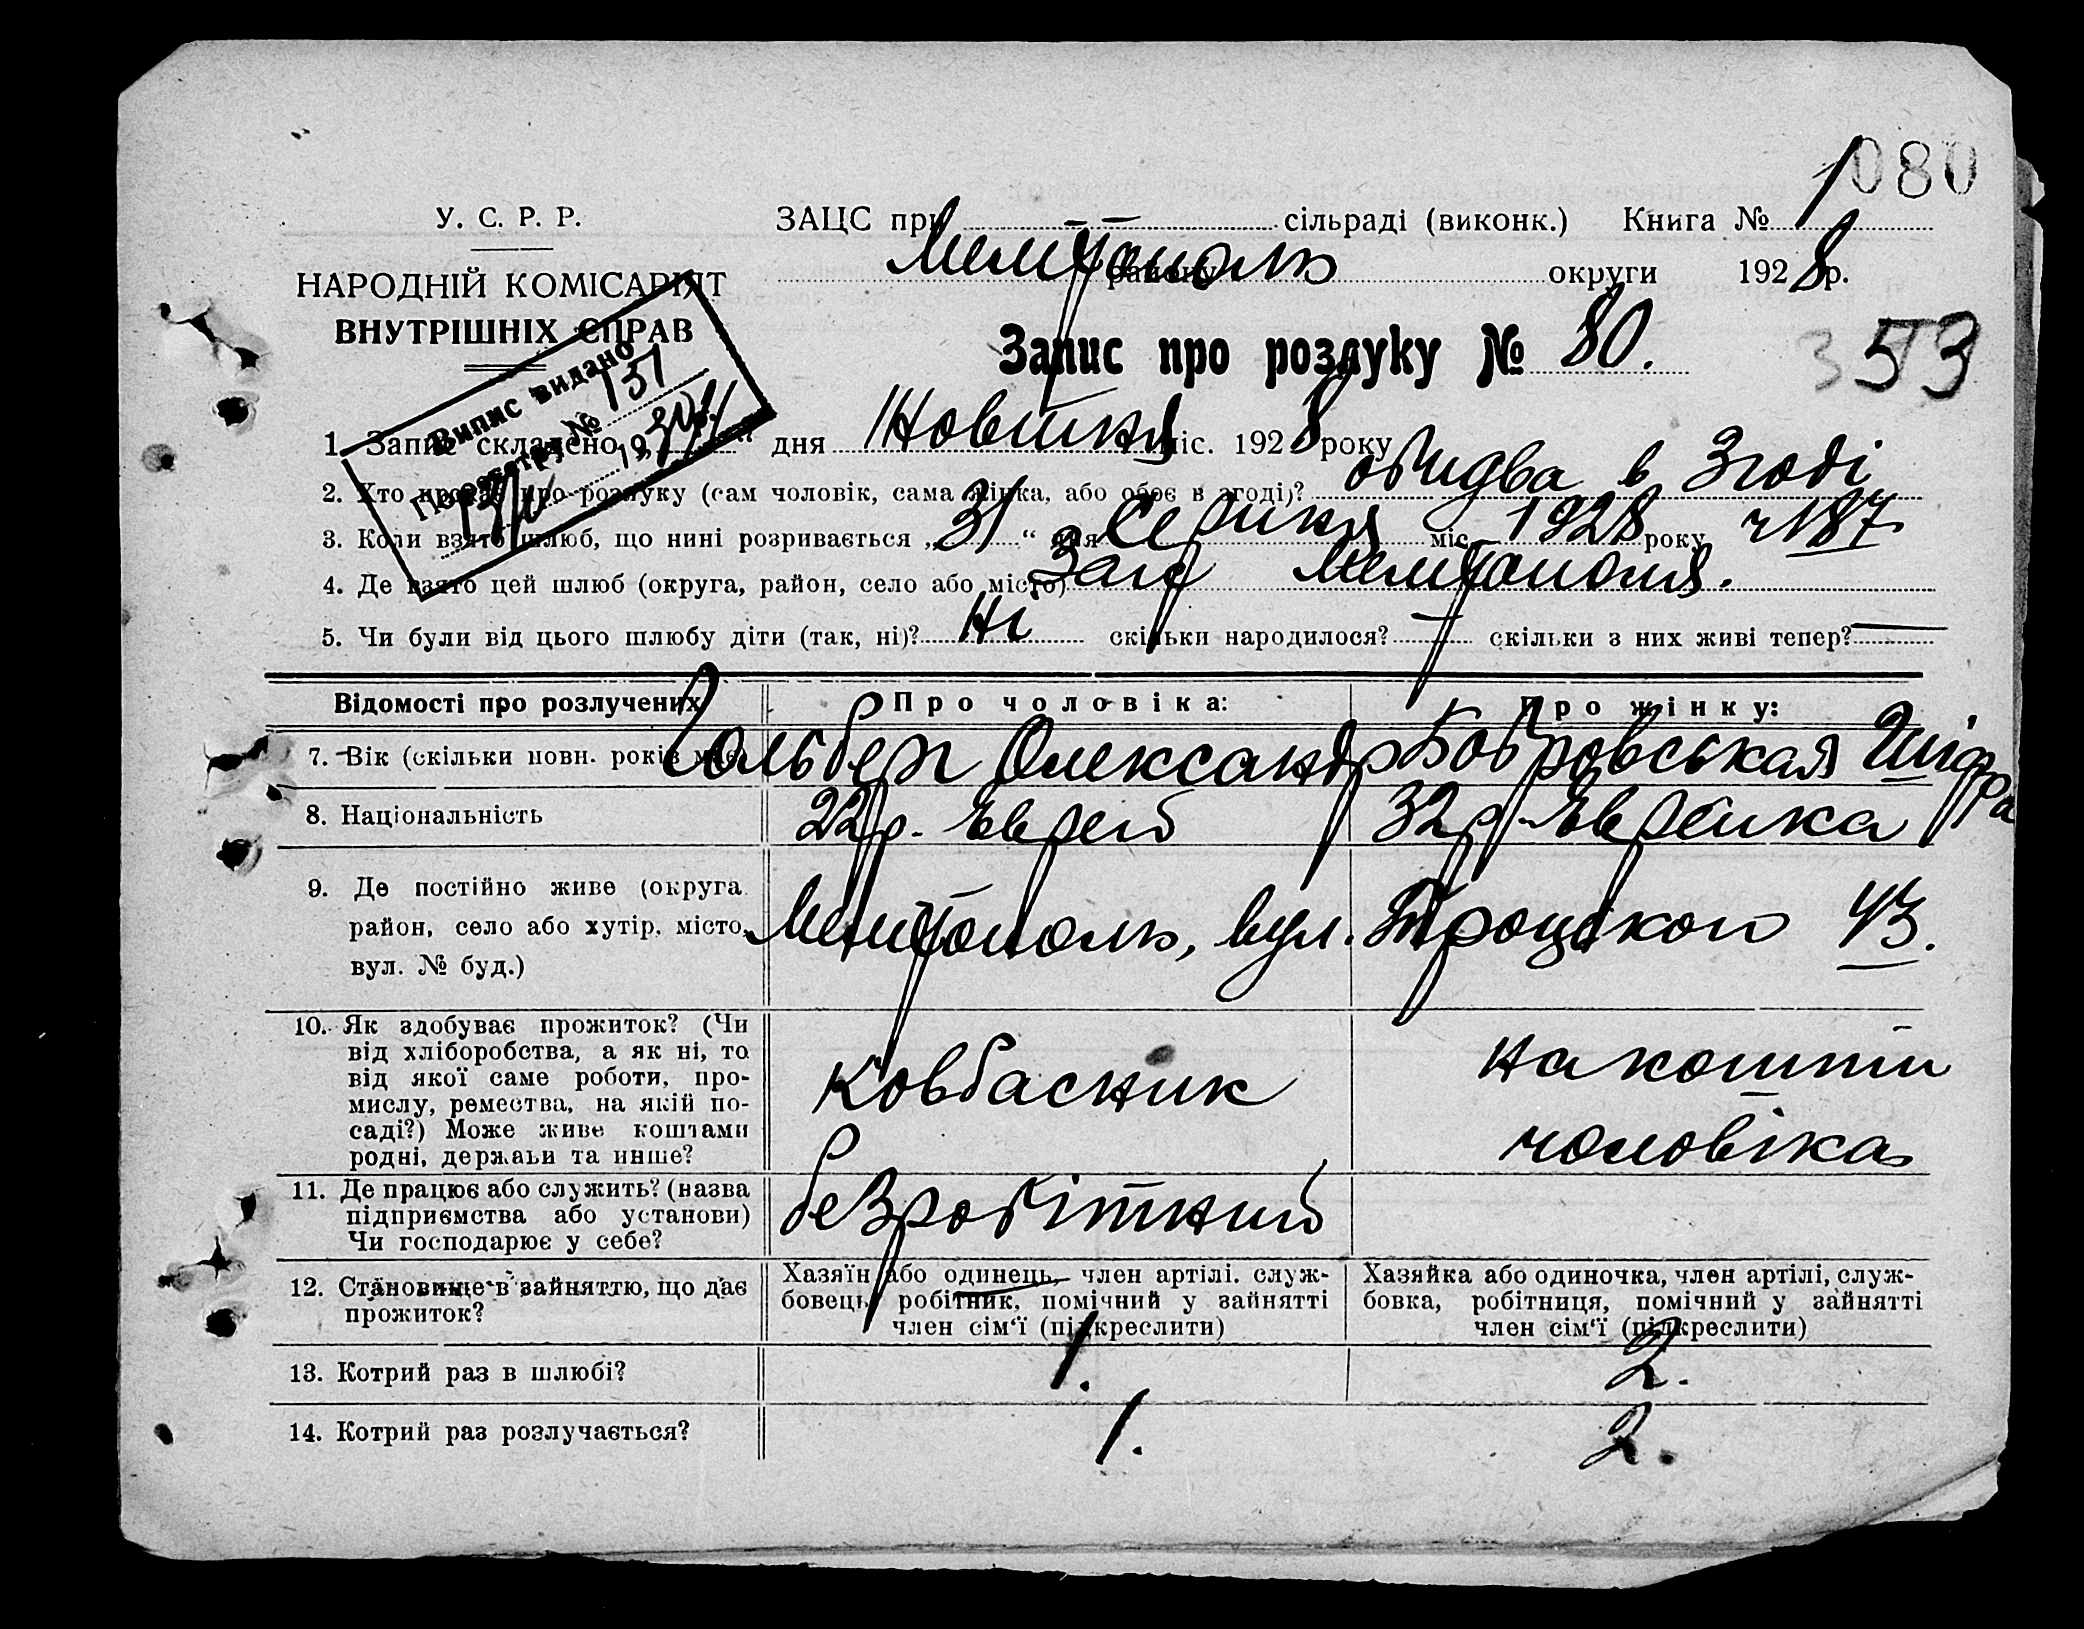 1080
У. С. Р. Р.
ЗАЦС при сільраді (виконк.) Книга № 1
Мелітополь району округи 1928 р.
НАРОДНІЙ КОМІСАРІЯТ
ВНУТРІШНІХ СПРАВ
Запис про розлуку № 80.
353
Випис видано
По реєстру № 151
1. Запис складено „ “ дня Новембря міс. 1928 року
2. Хто прохає про розлуку (сам чоловік, сама жінка, або обоє в згоді)? обидва в Згоді
3. Коли взято шлюб, що нині розривається „31“ дня Серпня міс. 1928 року ч 187
4. Де взято цей шлюб (округа, район, село або місто) Загс Мелітополя.
5. Чи були від цього шлюбу діти (так, ні)? Ні скільки народилося? — скільки з них живі тепер? —
Відомості про розлучених Про чоловіка: Про жінку:
Гольберг Олександр Бобровськая Шифра
7. Вік (скільки повн. років має)
22 р. Еврей 32 р. Еврейка
8. Національність
9. Де постійно живе (округа
район, село або хутір, місто,
вул. № буд.)
Мелітополь, вул. Троцького 43.
10. Як здобуває прожиток? (Чи
від хліборобства, а як ні, то
від якої саме роботи, про-
мислу, ремества, на якій по-
саді?) Може живе коштами
родні, держави та инше?
Ковбасник
на кошти
чоловіка
11. Де працює або служить? (назва
підприємства або установи)
Чи господарює у себе?
безробітний
12. Становище в зайняттю, що дає
прожиток?
Хазяїн або одинець, член артілі, служ-
бовець, робітник, помічний у зайнятті
член сім‘ї (підкреслити)
Хазяйка або одиночка, член артілі, служ-
бовка, робітниця, помічний у зайнятті
член сім‘ї (підкреслити)
13. Котрий раз в шлюбі? 1. 2.
14. Котрий раз розлучається? 1. 2.